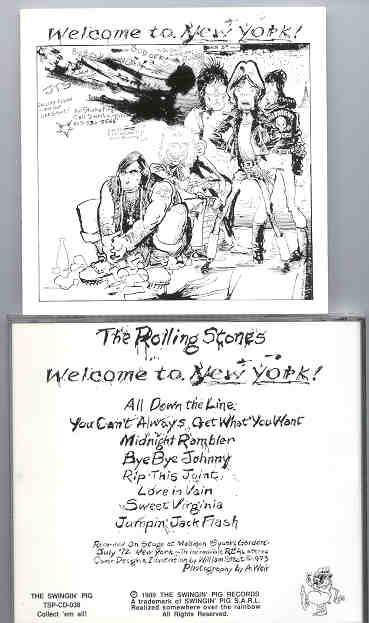 Welcome to New York!
The Rolling Stones
Welcome to New York!
All Down the Line
You Can't Always Get What You Want
Midnight Rambler
Bye Bye Johnny
Rip This Joint
Love in Vain
Sweet Virginia
Jumpin' Jack Flash
Recorded On Stage at Madison Square Garden
July '72 New York - In incredible REAL stereo
Cover Design & Illustration by William Stout © 1973
Photography by A. Weir
THE SWINGIN' PIG
TSP-CD-038
Collect 'em all!
© 1989 THE SWINGIN' PIG RECORDS
A trademark of SWINGIN' PIG S.A.R.L.
Realized somewhere over the rainbow
All Rights Reserved.